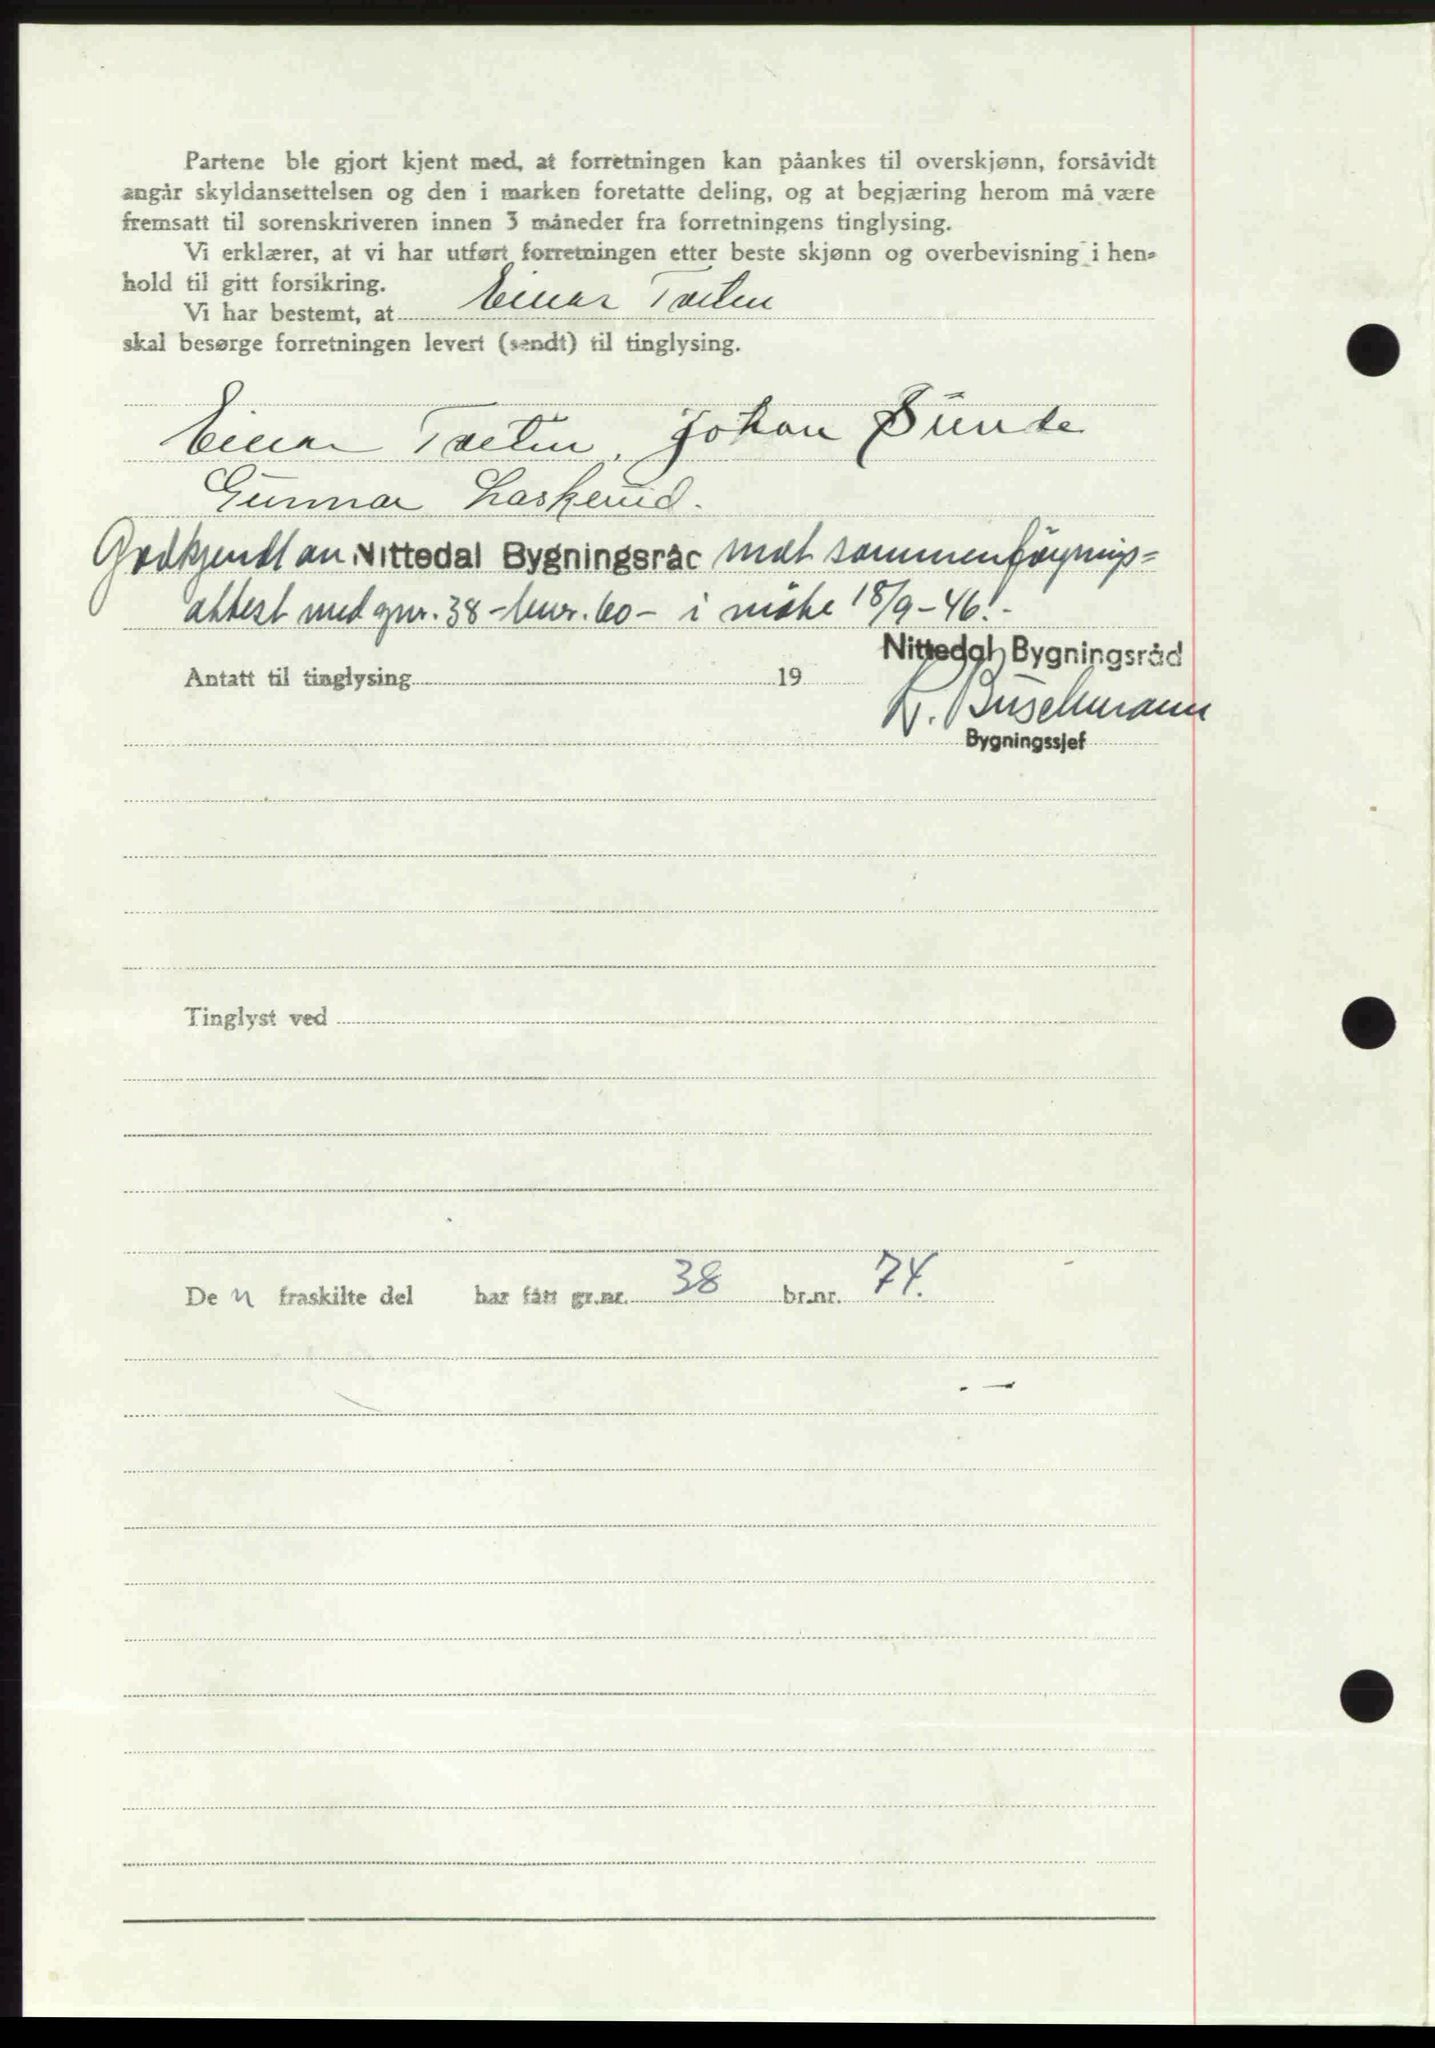 Partene ble gjort kjent med, at forretningen kan påankes til overskjønn, forsåvidt
angår skyldansettelsen og den i marken foretatte deling, og at begjæring herom må være
fremsatt til sorenskriveren innen 3 måneder fra forretningens tinglysing.
Vi erklærer, at vi har utført forretningen etter beste skjønn og overbevisning i hen-
hold til gitt forsikring.
Vi har bestemt, at Einar Tveten
skal besørge forretningen levert (sendt) til tinglysing.
Einar Tveten. Johan Bunde
Gunnar Laskerud.
Godkjendt av Nittedal Bygningsråd mot sammenföynings=
attest med gnr. 38 - bnr. 60 - i möte 18/9-46.-
Nittedal Bygningsråd
Antatt til tinglysing 19
R. Buschmann
Bygningssjef
Tinglyst ved
De n fraskilte del har fått gr.nr. 38 br.nr. 74.